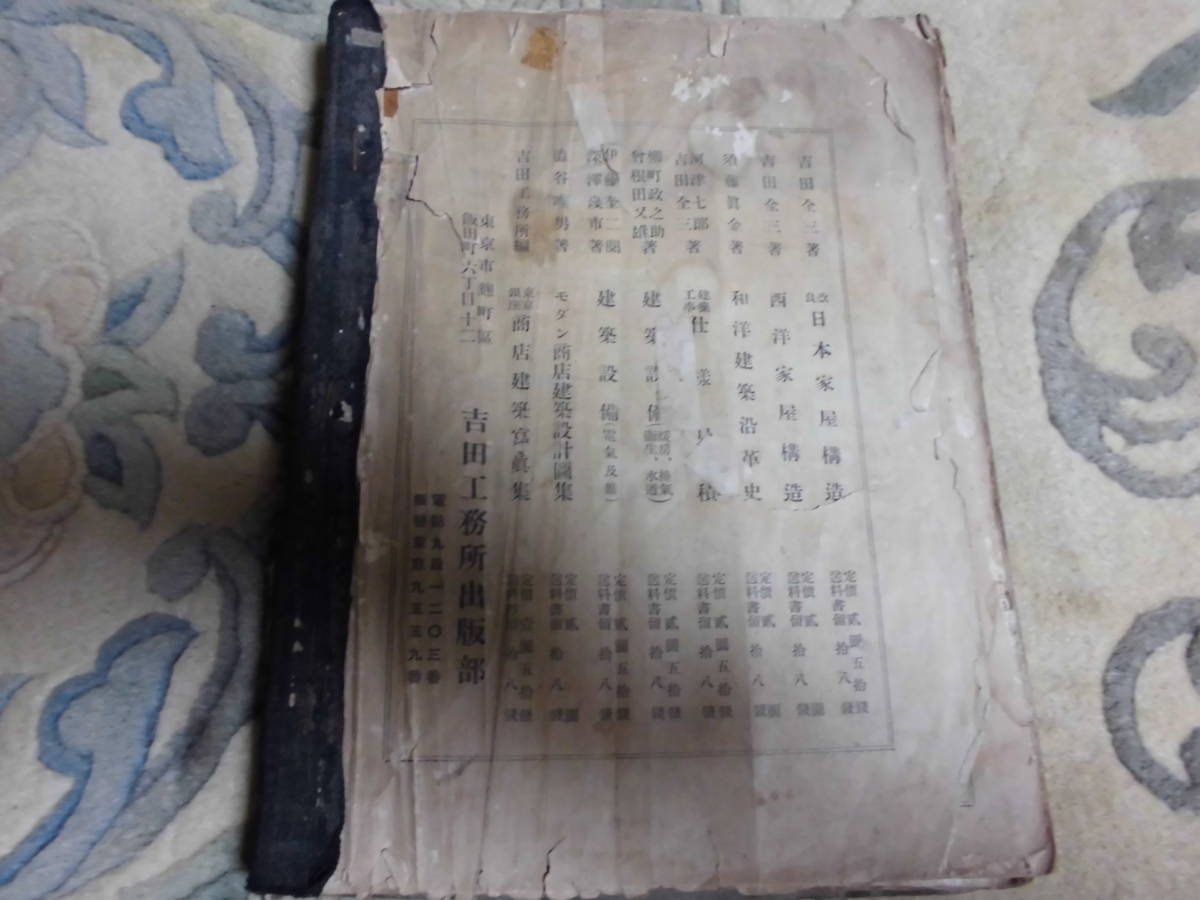 吉田全三著 改良日本家屋構造 定價貳圓五拾錢 送料書留拾八錢
吉田全三著 西洋家屋構造 定價貳圓 送料書留拾八錢
須藤眞金著 和洋建築沿革史 定價貳圓 送料書留拾八錢
河津七郎 吉田全三著 建築工事仕樣見積 定價貳圓五拾錢 送料書留拾八錢
柳町政之助 曾根田又雄著 建築設備(暖房、換氣 衞生、水道) 定價貳圓五拾錢 送料書留拾八錢
伊藤奎二閲 深澤 市著 建築設備(電氣及 ) 定價貳圓五拾錢 送料書留拾八錢
谷 男著 モダン商店建築設計圖集 定價貳圓 送料書留拾八錢
吉田工務所編 東京銀座商店建築寫眞集 定價壹圓五拾錢 送料書留拾八錢
東京市麴町區飯田町六丁目十二 吉田工務所出版部
電話九段一二〇三番
振替東京九五五九番